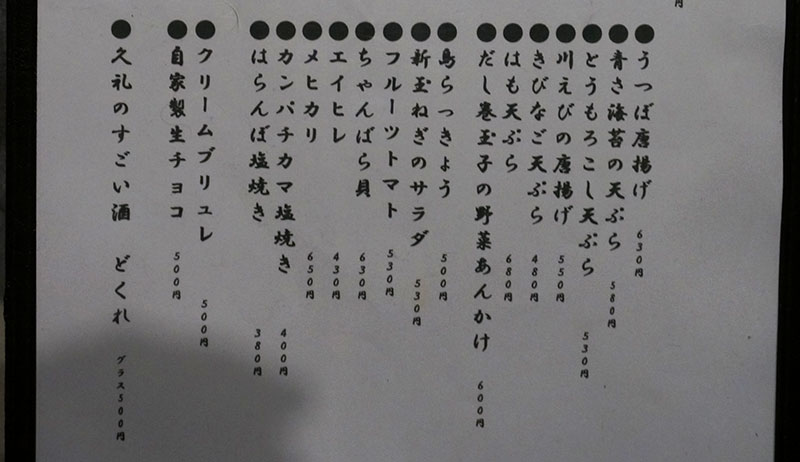 円
●うつぼ唐揚げ 630円
●青さ海苔の天ぷら 580円
●とうもろこし天ぷら 530円
●川えびの唐揚げ 550円
●きびなご天ぷら 480円
●はも天ぷら 680円
●だし巻玉子の野菜あんかけ 600円
●島らっきょう 500円
●新玉ねぎのサラダ 530円
●フルーツトマト 530円
●ちゃんばら貝 630円
●エイヒレ 430円
●メヒカリ 650円
●カンパチカマ塩焼き 400円
●はらんぼ塩焼き 380円
●クリームブリュレ 500円
●自家製生チョコ 500円
●久礼のすごい酒 どくれ グラス500円